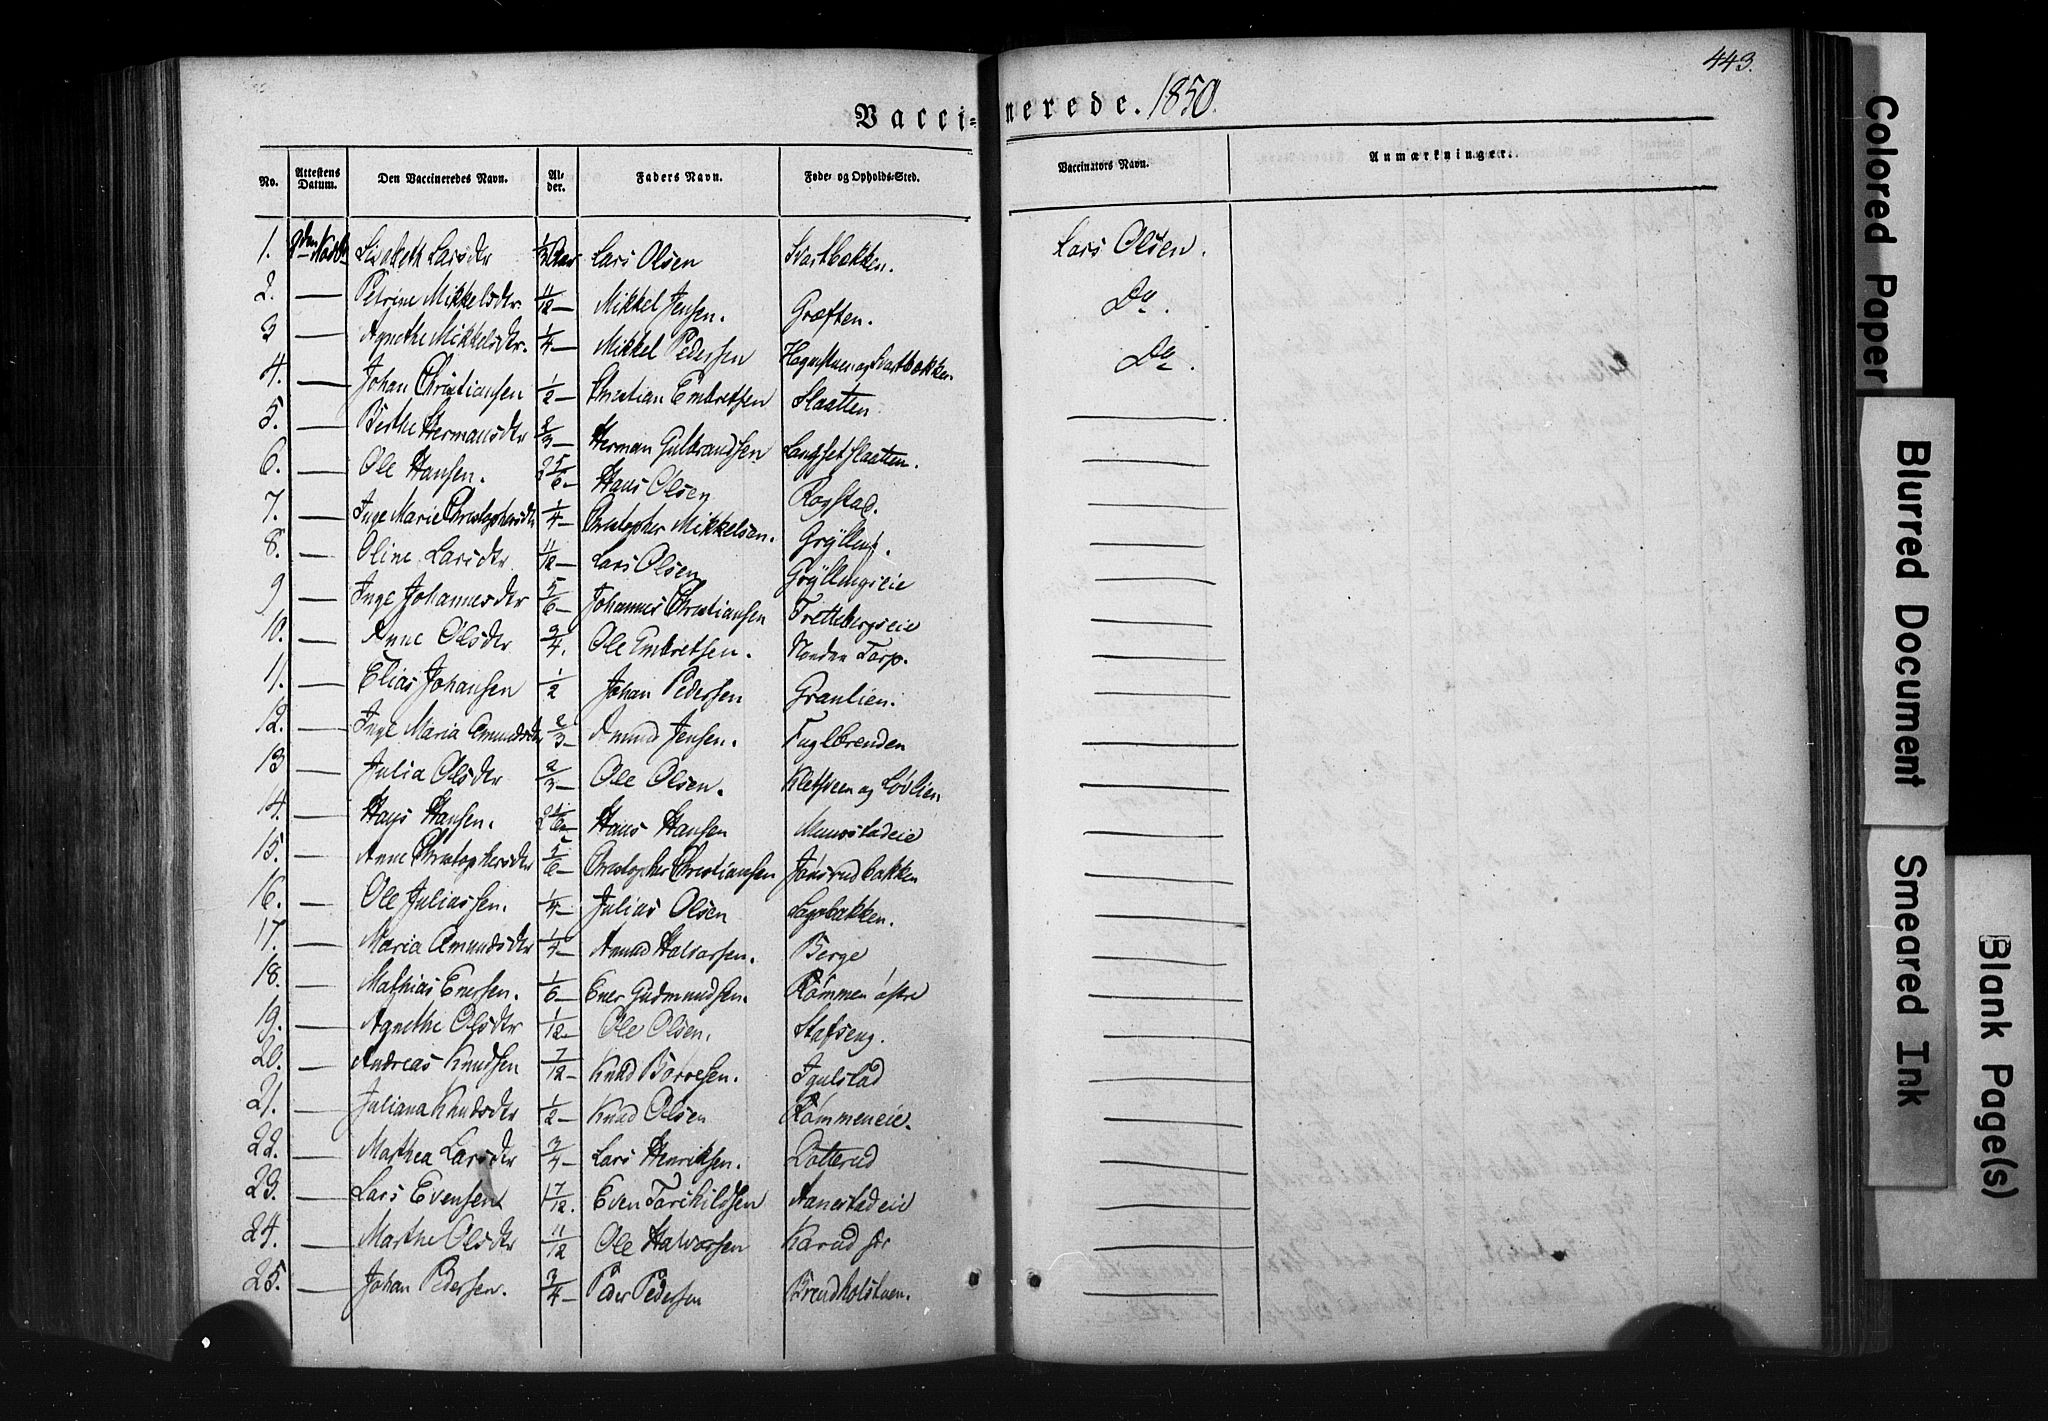 443.
Vaccinerede. 1850.
No. Attestens Datum. Den Vaccineredes Navn. Alder. Faders Navn. Føde- og Opholds-Sted. Vaccinators Navn. Anmærkninger.
1. Lisabeth Larsdtr Lars Olsen Svartbækken. Lars Olsen.
2. — Petrine Mikkelsdtr. 11/12 — Mikkel Jensen. Græften. Do.
3 — Agnethe Mikkelsdtr. 1/4 — Mikkel Pedersen Do.
4. — Johan Christiansen 1/2 — Christian Embretsen Slaatten —
5. — Berthe Hermansdtr 2/3 — Herman Gulbrandsen Langsetslaatten. —
6. — Ole Hansen. 2 5/6 — Hans Olsen Rogstad. —
7. — Inge Marie Christophersdtr 1/4 — Christopher Mikkelsen. Grÿlling. —
8. — Oline Larsdtr 11/12 — Lars Olsen Grÿllingseie —
9 — Inge Johannesdtr 5/6 — Johannes Christiansen Frettebergseie —
10. — Anne Olsdtr 3/4. Ole Embretsen. Nordre Torp. —
11. — Elias Johansen 1/2 Johan Pedersen Granlien. —
12. — Inge Maria Amundsdtr 2/3 — Amund Jensen. Fuglbrenden —
13 — Julia Olsdtr 2/3 — Ole Olsen. Kletsveen og Lövlien —
14. — Hans Hansen. Hans Hansen —
15. — Anne Christophersdtr 5/6 — Christopher Christiansen Jönsrudbakken —
16. — Ole Juliussen. 1/4 — Julius Olsen —
17. — Maria Amundsdtr 1/4 — Amund Halvorsen. Berge —
18. — Mathias Enersen. 1/6 — Ener Gudmundsen. Römmen östre —
19. — Agnethe Olsdtr 1/12 — Ole Olsen. Stafseng. —
20. — Andreas Knudsen 7/12 — Knud Borresen. Igulstad —
21. — Juliana Knudsdtr 1/2 — Knud Olsen Römmeneie. —
22. — Marthea Larsdtr 3/4 — Lars Henriksen. Dotterud —
23. — Lars Evensen 1 7/12. Even Torkildsen Aanestadeie —
24. — Marthe Olsdtr 11/12 Ole Halvorsen —
25. — Johan Pedersen. 3/4 — Peder Pedersen Brendholstuen. —
Colored Paper
Blurred Document
Smeared Ink
Blank Page(s)